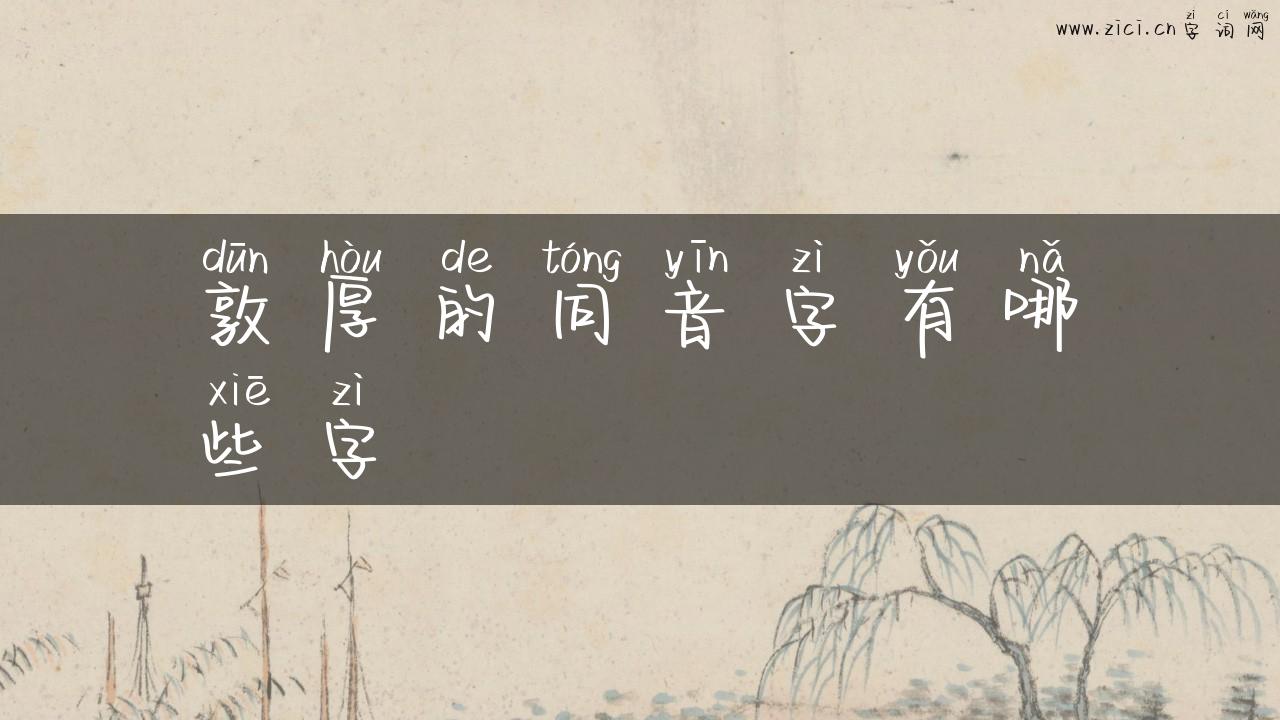 zì cí wǎng
www.zici.cn 字词网
dūn hòu de tóng yīn zì yǒu nǎ
敦厚的同音字有哪
xiē zì
些字